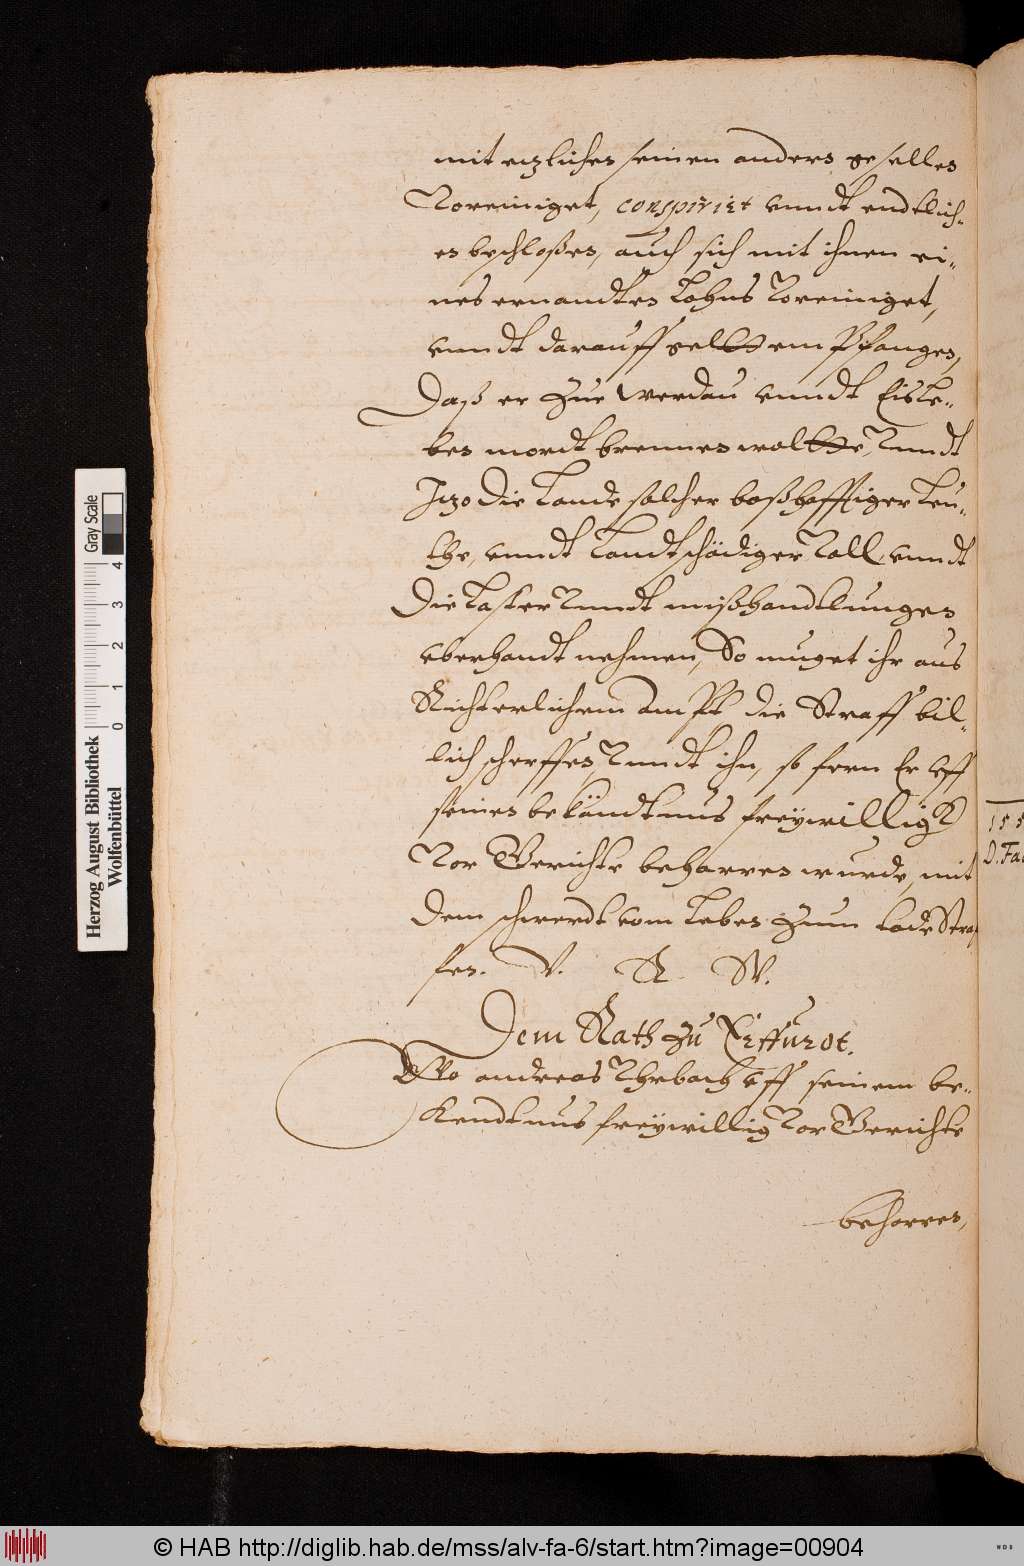 mit etzlichen seinen anders gesellen
Voreiniget, conspirirt vnndt endtlich-
en beschloßen, auch sich mit ihnen ei-
nes ernandten Lohns Voreiniget,
vnndt darauff geltt empfangen,
Daß er zue Werdau vnndt Eisle-
ben mordtbrennen woltte, Vnndt
Itzo die Lande solcher boßhafftiger Leu-
the, vnndt Landtschädiger Voll vnndt
Die Laster Vnndt mißhandtlungen
vberhandt nehmen, So muget ihr aus
Richterlichem ampt die Straff bil-
lich scherffen, Vnndt ihn, so fern Er vff
seinen bekändtnus freywillig
Vor Gerichte beharren wurde, mit
Dem schwerdt vom Leben zum tode Straf
fen. V. R. W.
Dem Rath zu Erffurdt.
Wo andreas Vhrbach vff seinem be-
kendtnus freywillig Vor Gerichte
beharren,
155
D. Fa
Herzog August Bibliothek
Wolfenbüttel
Gray Scale
0 1 2 3 4
© HAB http://diglib.hab.de/mss/alv-fa-6/start.htm?image=00904
WDB